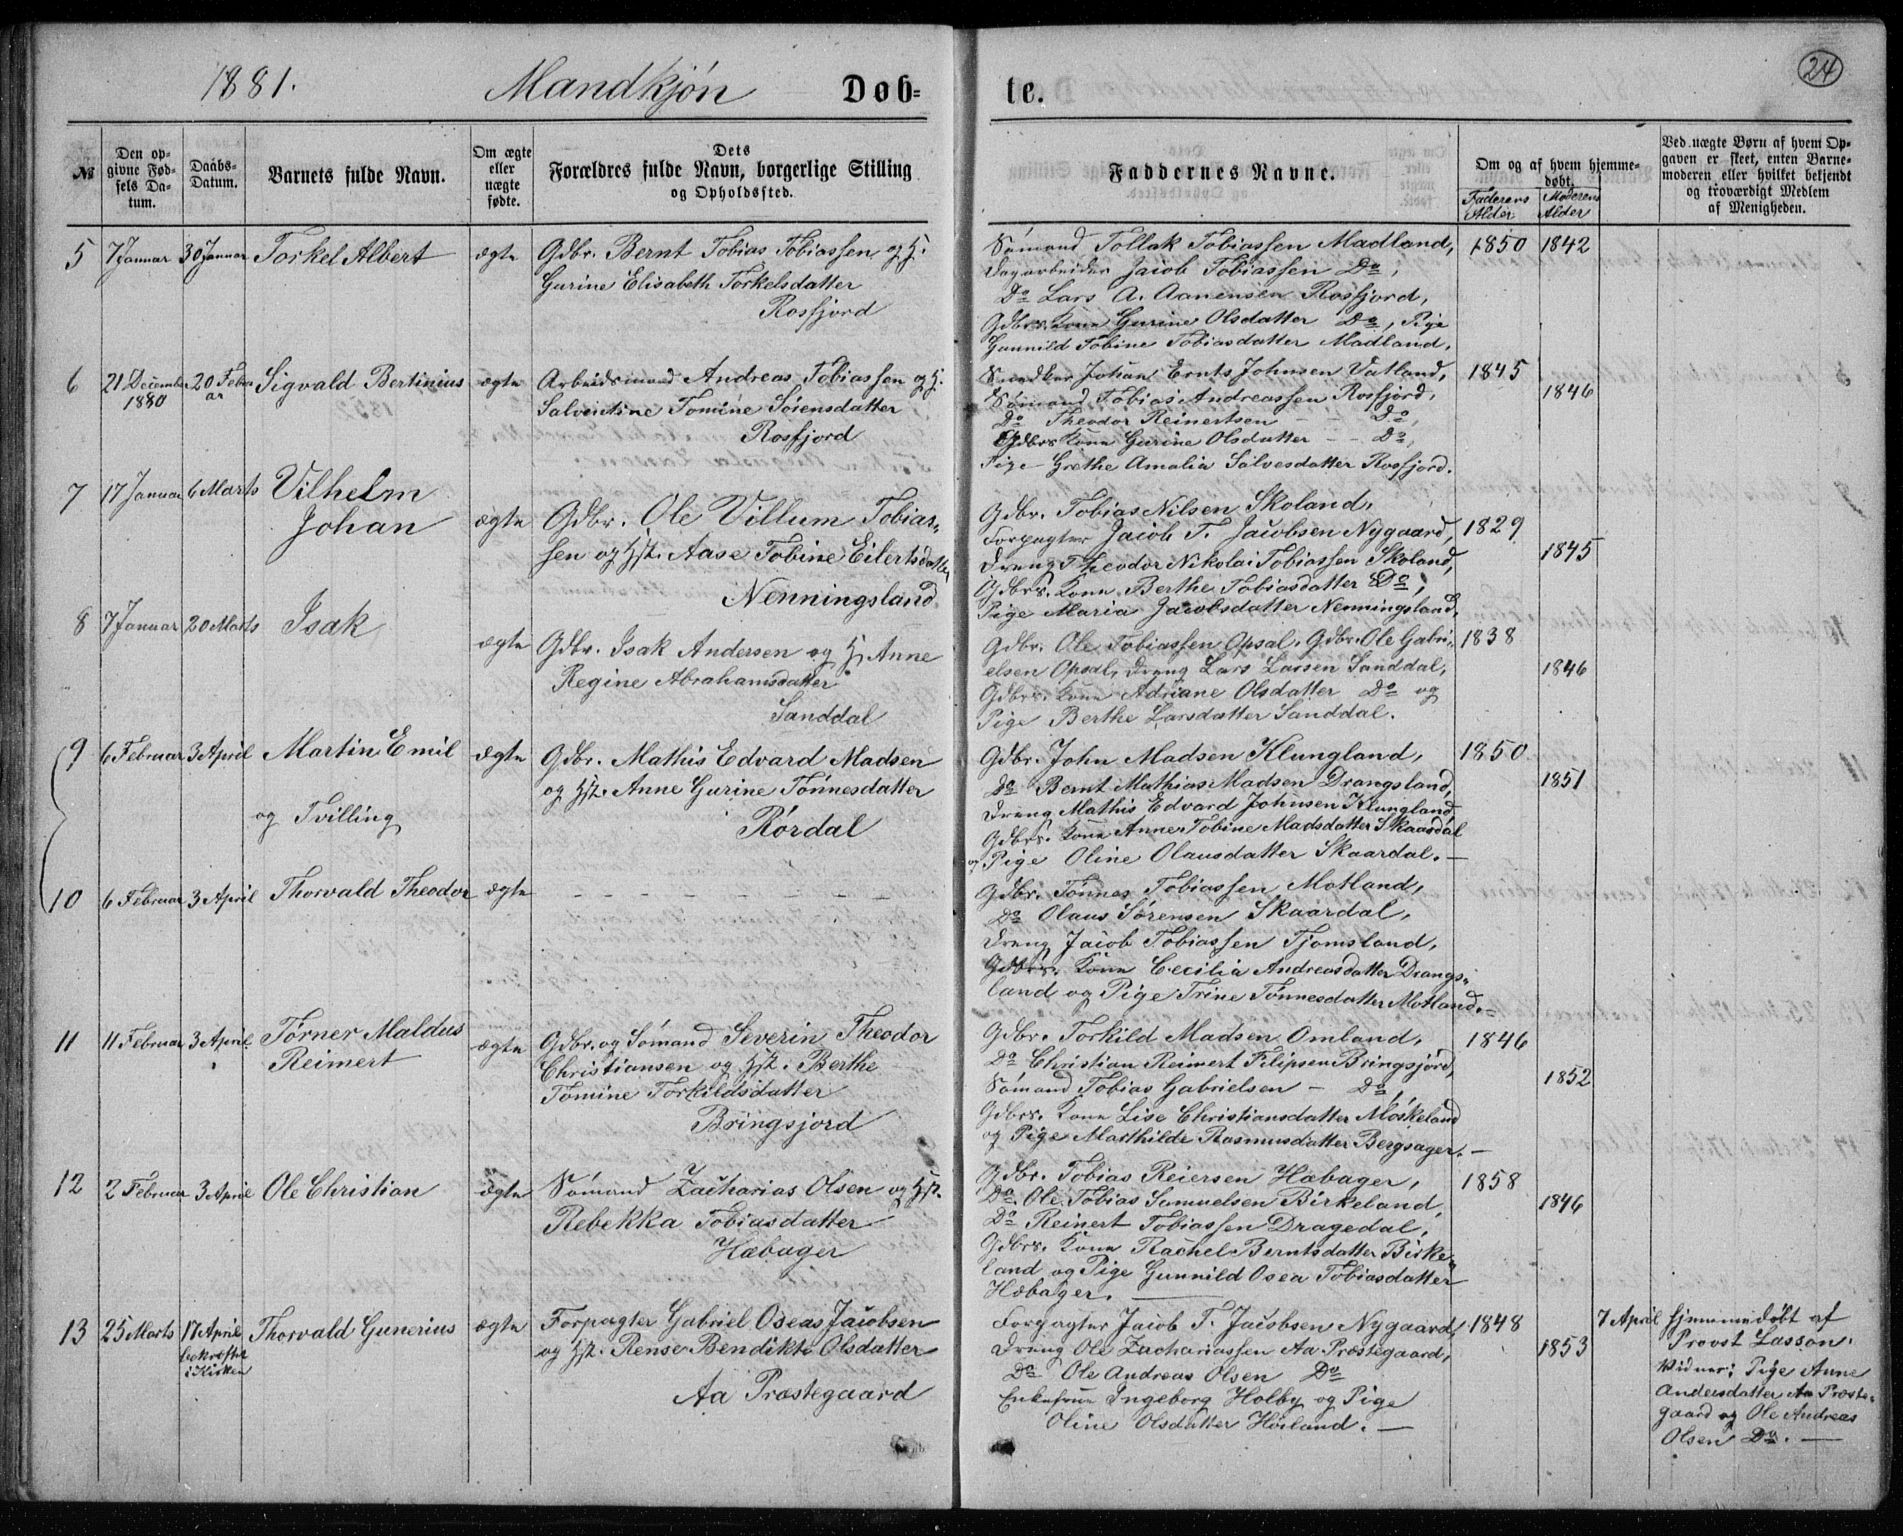 1881. Mandkjön Döb-
te. 24
№
Den op-
givne Fød-
sels Da-
tum.
Daabs-
Datum.
Barnets fulde Navn.
Om ægte
eller
uægte
fødte.
Dets
Forældres fulde Navn, borgerlige Stilling
og Opholdssted.
Faddernes Navne.
Om og af hvem hjemme-
døbt.
Faderens
Alder
Moderens
Alder
Ved uægte Børn af hvem Op-
gaven er skeet, enten Barne-
moderen eller hvilket bekjendt
og troværdigt Medlem
af Menigheden.
5 7 Januar 30 Januar Torkel Albert ægte Gdbr. Bernt Tobias Tobiassen og H.
Gurine Elisabeth Torkelsdatter
Rosfjord
Sømand Tollak Tobiassen Madland, 1850 1842
Dagarbeider Jacob Tobiassen Do,
Do Lars A. Aanensen Rosfjord,
Gdbrs. Kone Gurine Olsdatter Do, Pige
Gunnild Tobine Tobiasdatter Madland.
6 21 December 20 Febru Sigvald Bertinius ægte Arbeidsmand Andreas Tobiassen og H.
1880 ar Salventine Tomine Sørensdatter
Rosfjord
Snedker Johan Ernts Johnsen Vatland, 1845
Sømand Tobias Andreassen Rosfjord, 1846
Do Theodor Reinertsen – – Do,
Gdbrs Kone Gurine Olsdatter – – Do,
Pige Grethe Amalia Salvesdatter Rosfjord.
7 17 Januar 6 Marts Vilhelm
Johan ægte Gdbr. Ole Villum Tobias-
sen og Hst. Aase Tobine Eilertsdatter
Nenningsland
Gdbr. Tobias Nilsen Skoland,
Forpagter Jacob T. Jacobsen Nygaard, 1829
Dreng Theodor Nikolai Tobiassen Skoland, 1845
Gdbrs. Kone Berthe Tobiasdatter Do,
Pige Maria Jacobsdatter Nenningsland.
8 7 Januar 20 Marts Isak
ægte Gdbr. Isak Andersen og H. Anne
Regine Abrahamsdatter
Sanddal
Gdbr. Ole Tobiassen Opsal, Gdbr. Ole Gabri- 1838
elsen Opsal, Dreng Lars Larsen Sanddal, 1846
Gdbrs. Kone Adriane Olsdatter Do og
Pige Berthe Larsdatter Sanddal.
9 6 Februar 3 April Martin Emil ægte Gdbr. Mathis Edvard Madsen
og Hst. Anne Gurine Tønnesdatter
og Tvilling Rørdal
Gdbr. John Madsen Klungland, 1850
Do Bernt Mathias Madsen Drangsland, 1851
Dreng Mathis Edvard Johnsen Klungland
Gdbrs. Kone Anne Tobine Madsdatter Skaardal
og Pige Oline Olausdatter Skaardal. –
10 6 Februar 3 April Thorvald Theodor ægte – – – – – – –
Gdbr. Tønnes Tobiassen Motland,
Do Olaus Sørensen Skaardal,
Dreng Jacob Tobiassen Tjomsland,
Gdbrs. Kone Cecilia Andreasdatter Drangs-
land og Pige Trine Tønnesdatter Motland. –
11 11 Februar 3 April Tørner Maldus
Reimert ægte Gdbr. og Sømand Severin Theodor
Christiansen og Hst. Berthe
Tomine Torkildsdatter
Bringsjord
Gdbr. Torkild Madsen Omland, 1846
Do Christian Reimert Filipsen Bringsjord, 1852
Sømand Tobias Gabrielsen – Do,
Gdbrs. Kone Lise Christiansdatter Møskeland
og Pige Marthilde Rasmusdatter Bergsager. –
12 2 Februar 3 April Ole Christian ægte Sømand Zacharias Olsen og Hst.
Rebekka Tobiasdatter
Hæbager
Gdbr. Tobias Reiersen Hæbager, 1858
Do Ole Tobias Samuelsen Birkeland, 1846
Do Reinert Tobiassen Dragedal,
Gdbrs. Kone Rachel Berntsdatter Birke-
land og Pige Gunnild Osea Tobiasdatter
Hæbager. –
13 25 Marts 17 April Thorvald Gunerius ægte Forpagter Gabriel Oseas Jacobsen
bekræftet
i Kirken og Hst. Rense Bendikte Olsdatter
Aa Præstegaard
Forpagter Jacob T. Jacobsen Nygaard, 1848
Dreng Ole Zachariassen Aa Præstegaard, 1853
Do Ole Andreas Olsen Do
Enkefrue Ingeborg Holby og Pige
Oline Olsdatter Høiland. –
7 April hjemmedøbt af
Provst Lassen.
Vidner: Pige Anne
Andersdatter Aa Præste-
gaard og Ole Andreas
Olsen Do. –